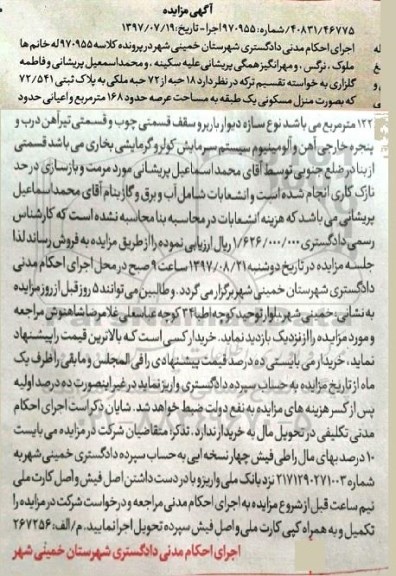 آگهی مزایده
۴۰۸۳۱/۴۶۷۷۵/شماره: ۹۷۰۹۵۵ اجرا - تاریخ: ۱۳۹۷/۰۷/۱۹
اجرای احکام مدنی دادگستری شهرستان خمینی شهر در پرونده کلاسه ۹۷۰۹۵۵ له خانم ها
ملوک ، نرگس ، و مهرانگیز همگی پریشانی علیه سکینه ، و محمداسمعیل پریشانی و فاطمه
گلزاری به خواسته تقسیم ترکه در نظر دارد ۱۸ حبه از ۷۲ حبه ملکی به پلاک ثبتی ۷۲/۵۴۱
که بصورت منزل مسکونی یک طبقه به مساحت عرصه حدود ۱۶۸ مترمربع و اعیانی حدود
۱۲۲ مترمربع می باشد نوع سازه دیوار باربر و سقف قسمتی چوب و قسمتی تیرآهن درب و
پنجره خارجی آهن و آلومینیوم سیستم سرمایش کولر و گرمایشی بخاری می باشد قسمتی
از بنا در ضلع جنوبی توسط آقای محمد اسماعیل پریشانی مورد مرمت و بازسازی در حد
نازک کاری انجام شده است و انشعابات شامل آب و برق و گاز بنام آقای محمداسماعیل
پریشانی می باشد که هزینه انشعابات در محاسبه بنا محاسبه نشده است که کارشناس
رسمی دادگستری ۱/۶۲۶/۰۰۰/۰۰۰ ریال ارزیابی نموده را از طریق مزایده به فروش رساند لذا
جلسه مزایده در تاریخ دوشنبه ۱۳۹۷/۰۸/۲۱ ساعت ۹ صبح در محل اجرای احکام مدنی
دادگستری شهرستان خمینی شهر برگزار می گردد. و طالبین می توانند ۵ روز قبل از روز مزایده
به نشانی ، خمینی شهر بلوار توحید کوچه اطبا ۳۴ کوچه عباسعلی غلامرضا شاهنوش مراجعه
و مورد مزایده را از نزدیک بازدید نماید. خریدار کسی است که بالاترین قیمت را پیشنهاد
نماید، خریدار می بایستی ده درصد قیمت پیشنهادی را فی المجلس و مابقی را ظرف یک
ماه از تاریخ مزایده به حساب سپرده دادگستری واریز نماید در غیر اینصورت ده درصد اولیه
پس از کسر هزینه های مزایده به نفع دولت ضبط خواهد شد. شایان ذکر است اجرای احکام
مدنی تکلیفی در تحویل مال به خریدار ندارد. تذکر: متقاضیان شرکت در مزایده می بایست
۱۰ درصد بهای مال را طی فیش چهار نسخه ایی به حساب سپرده دادگستری خمینی شهر به
شماره ۲۱۷۱۲۹۰۲۷۱۰۰۳ نزد بانک ملی واریز و با در دست داشتن اصل فیش و اصل کارت ملی
نیم ساعت قبل از شروع مزایده به اجرای احکام مدنی مراجعه و درخواست شرکت در مزایده را
تکمیل و به همراه کپی کارت ملی و اصل فیش سپرده تحویل اجرا نمایید. م/الف: ۲۶۷۲۵۶
اجرای احکام مدنی دادگستری شهرستان خمینی شهر